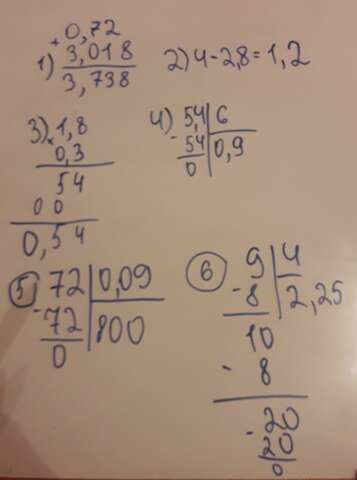 + 0,72
1) 3,018
3,738
2) 4-2,8=1,2
3) 1,8
× 0,3
54
00
0,54
4) 5,4 | 6
- 54 | 0,9
0
5 72 | 0,09
- 72 | 800
0
6 9 | 4
- 8 | 2,25
10
- 8
- 20
20
0